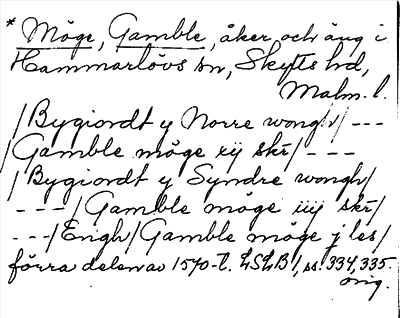 * Möge, Gamble, åker och äng i
Hammarlövs sn, Skytts hd,
Malm. l.
/Bygiordt y Norre wongh/ ---
/Gamble möge xij skr/ ---
/Bygiordt y Syndre wongh/
---/Gamble möge iiij skr/
---/Engh/Gamble möge j les/
förra delen av 1570-t. LSLB 1, ss. 334, 335.
orig.